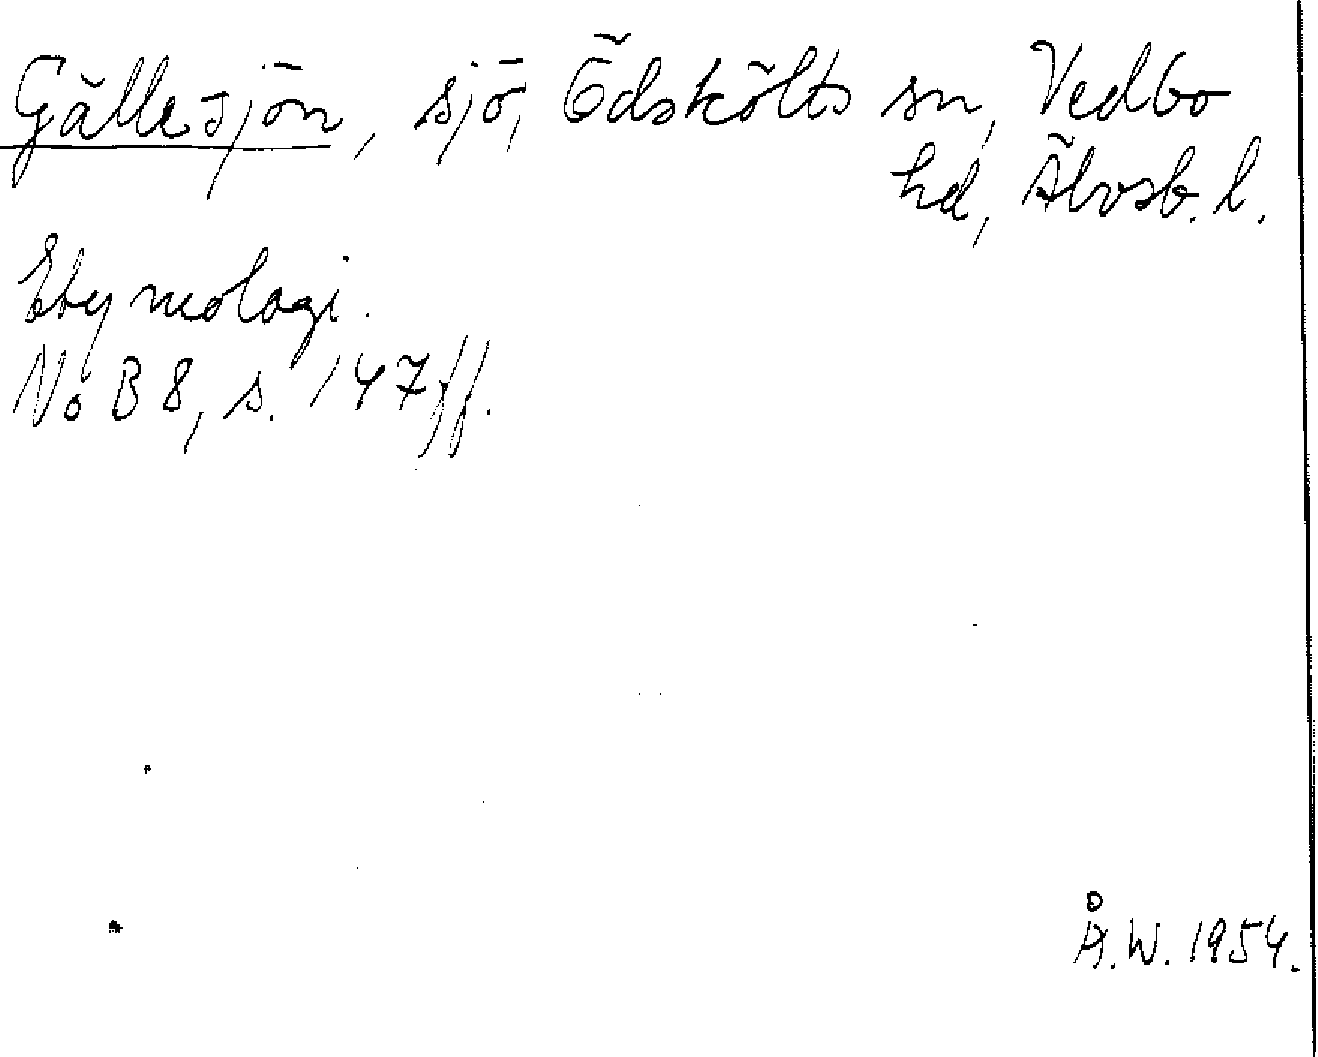 Gällesjön, sjö, Ödskölts sn, Vedbo
hd, Älvsb. l.
Etymologi.
NoB 8, s. 147 ff.
Å.W. 1954.